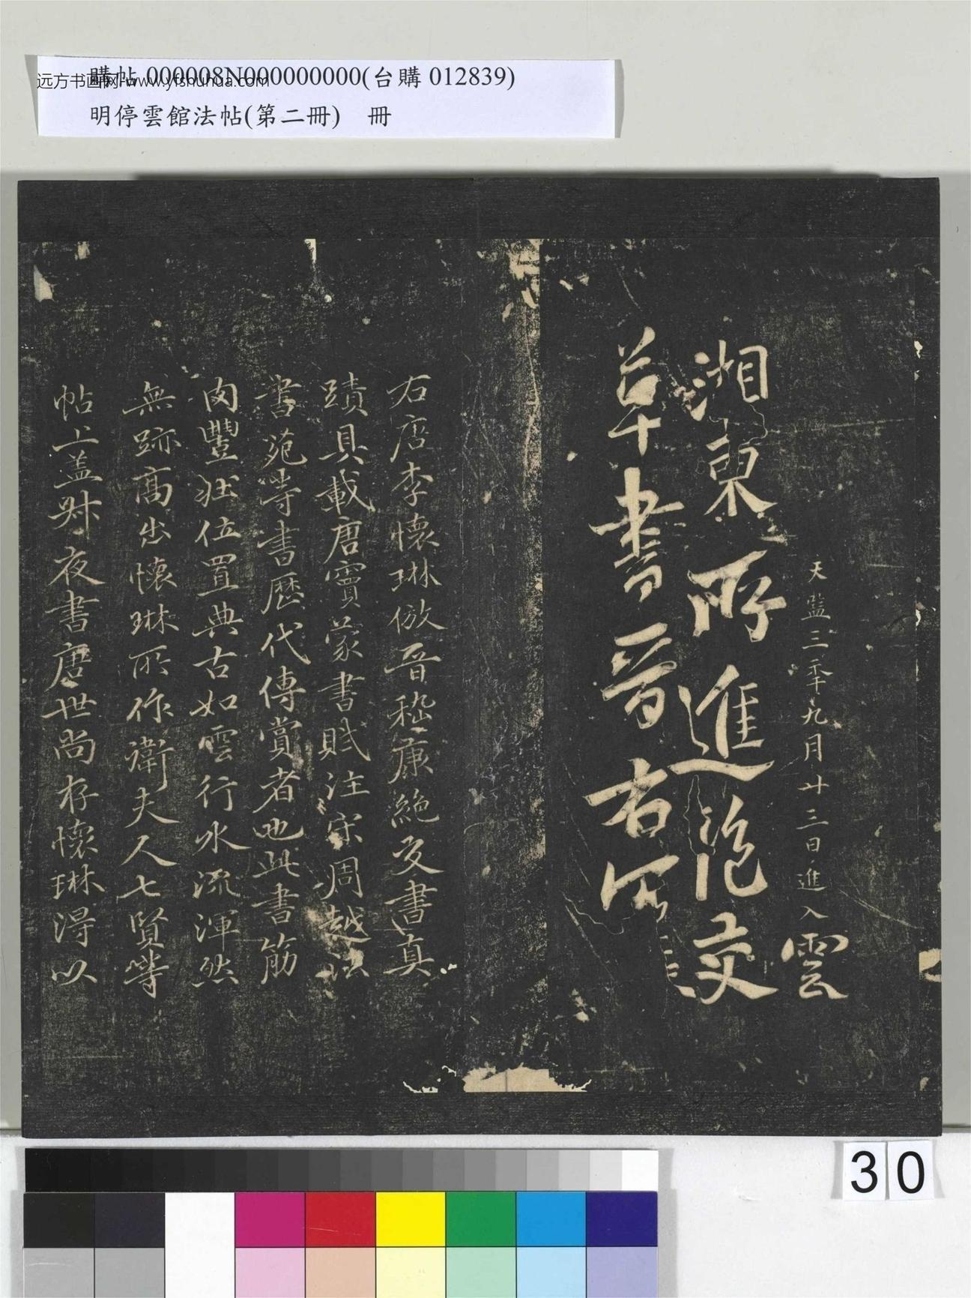 購帖 000008N000000000(台購 012839)
远方书画网 www.yfshuhua.com
明停雲館法帖(第二冊)　冊
天監三年九月廿三日進入 雲
湘東所進絶交
草書晉右軍
右唐李懷琳倣晉嵇康絶交書真
蹟具載唐竇蒙書賦注宋周越法
書苑等書歷代傳賞者也此書筋
肉豐壯位置典古如雲行水流渾然
無跡髙出懷琳所作衛夫人七賢等
帖上盖叔夜書唐世尚存懷琳淂以
30